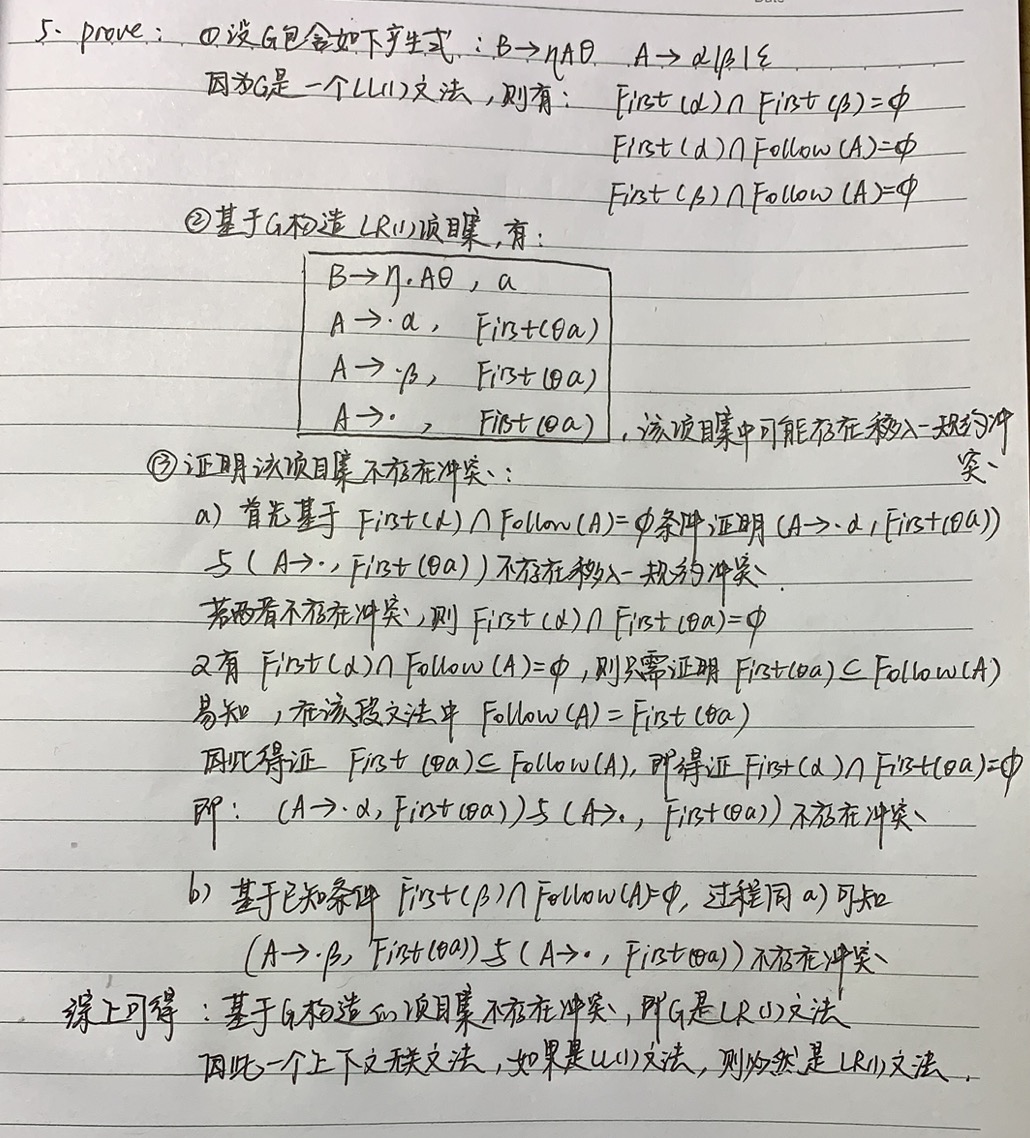 5. prove: ①设G包含如下产生式: B→ηAθ A→α|β|ε
因为G是一个LL(1)文法,则有: First(α)∩First(β)=φ
First(α)∩Follow(A)=φ
First(β)∩Follow(A)=φ
②基于G构造LR(1)项目集,有:
B→η.Aθ, a
A→·α, First(θa)
A→·β, First(θa)
A→·, First(θa)
,该项目集中可能存在移入-规约冲
突、
③证明该项目集不存在冲突、:
a) 首先基于First(α)∩Follow(A)=φ条件证明(A→·α, First(θa))
与(A→·, First(θa))不存在移入-规约冲突、
若两者不存在冲突、,则First(α)∩First(θa)=φ
又有First(α)∩Follow(A)=φ,则只需证明First(θa)⊆Follow(A)
易知,在该段文法中Follow(A)=First(θa)
因此得证 First(θa)⊆Follow(A),即得证First(α)∩First(θa)=φ
即: (A→·α, First(θa))与(A→·, First(θa))不存在冲突、
b) 基于已知条件First(β)∩Follow(A)=φ,过程同a)可知
(A→·β, First(θa))与(A→·, First(θa))不存在冲突、
综上可得:基于G构造的项目集不存在冲突、,即G是LR(1)文法
因此一个上下文无关文法,如果是LL(1)文法,则必然是LR(1)文法.